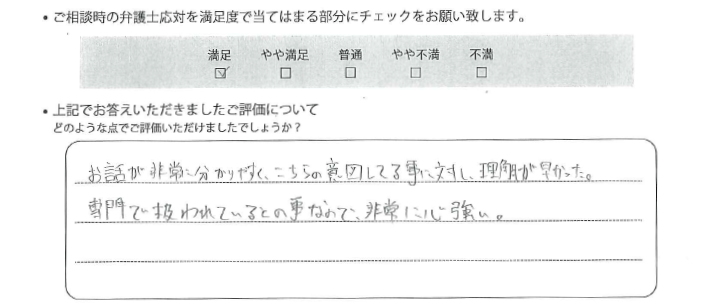 ・ご相談時の弁護士応対を満足度で当てはまる部分にチェックをお願い致します。
満足 やや満足 普通 やや不満 不満
☑ ☐ ☐ ☐ ☐
・上記でお答えいただきましたご評価について
どのような点でご評価いただけましたでしょうか？
お話が非常に分かりやすく、こちらの意図してる事に対し、理解が早かった。
専門で扱われているとの事なので、非常に心強い。